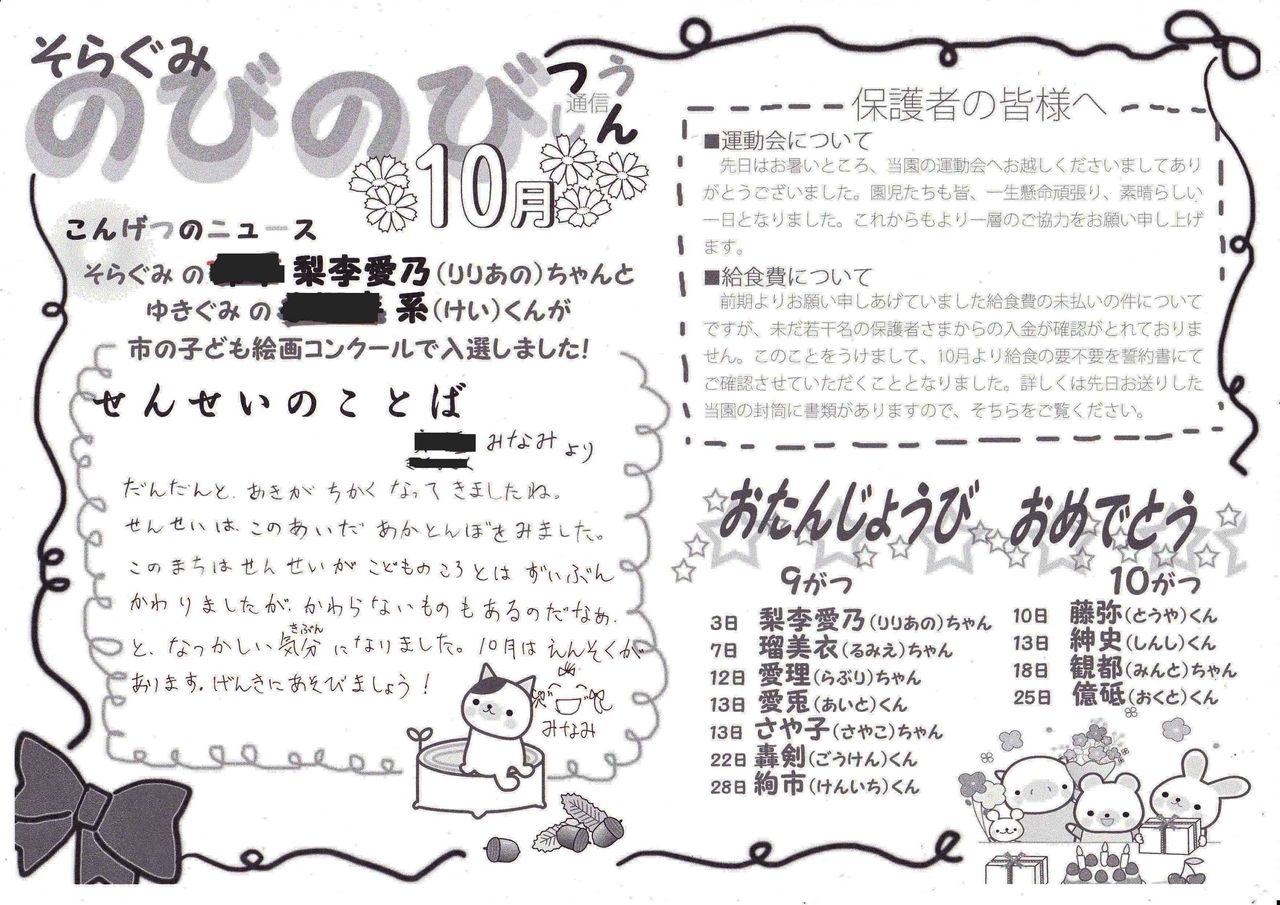 そらぐみ
のびのび
つうしん
通信
10月
こんげつのニュース
そらぐみ の 梨李愛乃(りりあの)ちゃんと
ゆきぐみ の 系(けい)くんが
市の子ども絵画コンクールで入選しました!
せんせいのことば
みなみ より
だんだんと、あきが ちかく なって きましたね。
せんせいは、このあいだ あかとんぼをみました。
このまちは せんせいが こどものころとは ずいぶん
かわりましたが、かわらないものもあるのだなぁ、
と、なつかしい気分になりました。10月は えんそくが
きぶん
あります。げんきにあそびましょう!
みなみ
保護者の皆様へ
■運動会について
先日はお暑いところ、当園の運動会へお越しくださいましてあり
がとうございました。園児たちも皆、一生懸命頑張り、素晴らしい
一日となりました。これからもより一層のご協力をお願い申し上げ
ます。
■給食費について
前期よりお願い申しあげていました給食費の未払いの件について
ですが、未だ若干名の保護者さまからの入金が確認がとれておりま
せん。このことをうけまして、10月より給食の要不要を誓約書にて
ご確認させていただくこととなりました。詳しくは先日お送りした
当園の封筒に書類がありますので、そちらをご覧ください。
おたんじょうび おめでとう
9がつ
3日 梨李愛乃(りりあの)ちゃん
7日 瑠美衣(るみえ)ちゃん
12日 愛理(らぶり)ちゃん
13日 愛兎(あいと)くん
13日 さや子(さやこ)ちゃん
22日 轟剣(ごうけん)くん
28日 絢市(けんいち)くん
10がつ
10日 藤弥(とうや)くん
13日 紳史(しんし)くん
18日 観都(みんと)ちゃん
25日 億砥(おくと)くん